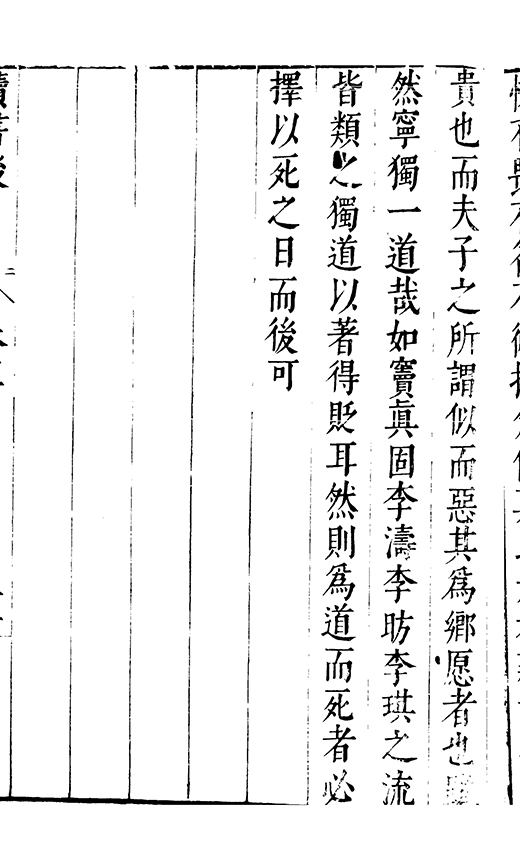 貴也而夫子之所謂似而惡其為鄉愿者也雖
然寧獨一道哉如竇真固李濤李昉李琪之流
皆類之獨道以著得貶耳然則為道而死者必
擇以死之日而後可
讀書後